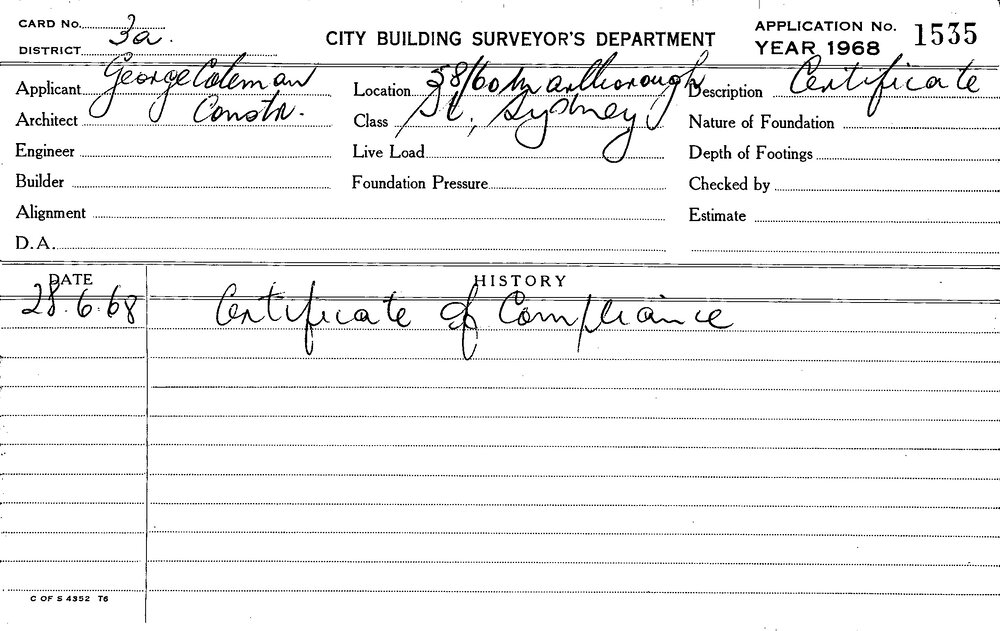 CARD No.
3a.
DISTRICT
CITY BUILDING SURVEYOR'S DEPARTMENT
APPLICATION No. 1535
YEAR 1968
Applicant George Coleman
Constr.
Location 58/60 Marlborough
St, Sydney
Description Certificate
Architect
Class
Nature of Foundation
Engineer
Live Load
Depth of Footings
Builder
Foundation Pressure
Checked by
Alignment
Estimate
D.A.
DATE HISTORY
28.6.68 Certificate of Compliance
C OF S 4352 T6